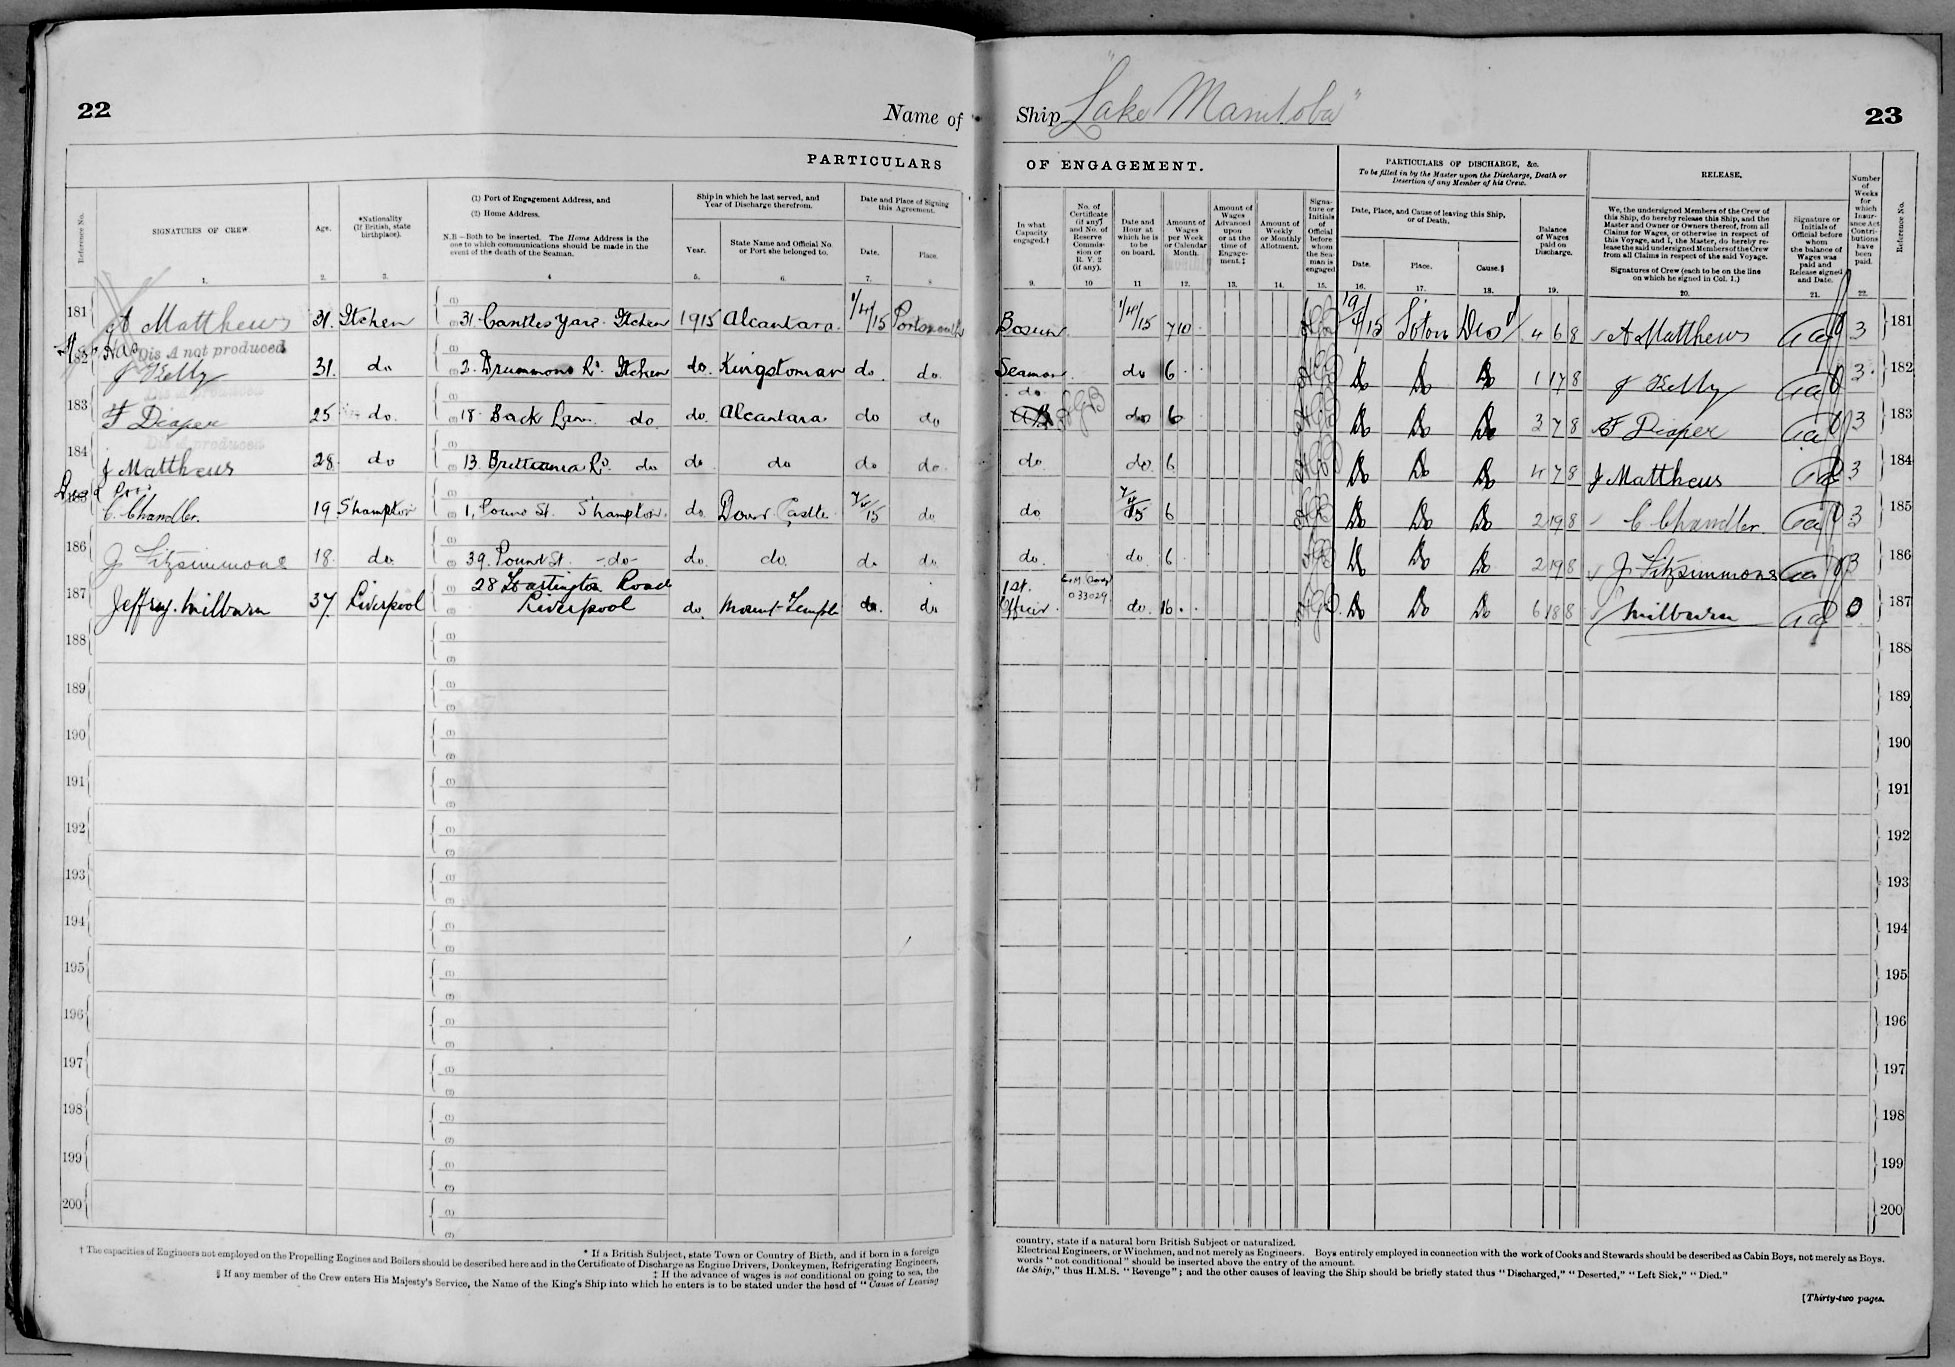 22
Name of
Ship "Lake Manitoba"
23
PARTICULARS
OF ENGAGEMENT.
PARTICULARS OF DISCHARGE, &c.
To be filled in by the Master upon the Discharge, Death or
Desertion of any Member of his Crew.
RELEASE.
Reference No.
SIGNATURES OF CREW.
Age.
*Nationality
(If British, state
birthplace).
(1) Port of Engagement Address, and
(2) Home Address.
N.B.—Both to be inserted. The Home Address is the
one to which communications should be made in the
event of the death of the Seaman.
Ship in which he last served, and
Year of Discharge therefrom.
Year.
State Name and Official No.
or Port she belonged to.
Date and Place of Signing
this Agreement.
Date.
Place.
In what
Capacity
engaged.†
No. of
Certificate
(if any)
and No. of
Reserve
Commis-
sion or
R. V. 2
(if any).
Date and
Hour at
which he is
to be
on board.
Amount of
Wages
per Week
or Calendar
Month.
Amount of
Wages
Advanced
upon
or at the
time of
Engage-
ment.‡
Amount of
Weekly
or Monthly
Allotment.
Signa-
ture or
Initials
of
Official
before
whom
the Sea-
man is
engaged
Date, Place, and Cause of leaving this Ship,
or of Death.
Date.
Place.
Cause.§
Balance
of Wages
paid on
Discharge.
We, the undersigned Members of the Crew of
this Ship, do hereby release this Ship, and the
Master and Owner or Owners thereof, from all
Claims for Wages, or otherwise in respect of
this Voyage, and I, the Master, do hereby re-
lease the said undersigned Members of the Crew
from all Claims in respect of the said Voyage.
Signatures of Crew (each to be on the line
on which he signed in Col. 1.)
Signature or
Initials of
Official before
whom
the balance of
Wages was
paid and
Release signed
and Date.
Number
of
Weeks
for
which
Insur-
ance Act
Contri-
butions
have
been
paid.
Reference No.
1. 2. 3. 4 5. 6. 7. 8 9. 10 11 12. 13. 14. 15. 16. 17. 18. 19. 20. 21. 22.
181 A Matthews 31. Itchen 31 Itchen 1915 Alcantara 1/4/15 Portsmouth Bosun 1/4/15 7 10 19/4/15 Soton 4 6 8 A Matthews 3 181
Dis A not produced
182 J Kelly 31. do 2. Drummond Rd. Itchen do. Kingstonian do. do. Seaman do 6 Do Do Do 1 17 8 J Kelly 3 182
Dis A produced
183 F Diaper 25 do. 18 Back Lane do. do. Alcantara do do do do 6 Do Do Do 3 7 8 F Diaper 3 183
Dis A produced
184 J Matthews 28. do 13. Brittannia Rd. do do. do do do. do. do. 6 Do Do Do 4 7 8 J Matthews 3 184
185 C. Chandler. 19 Shampton 1, Pound St. Shampton. do. Dover Castle 7/4/15 do do 7/4/15 6 Do Do Do 2 19 8 C Chandler. 3 185
186 J Fitzsimmons 18. do. 39. Pound St. -do- do. do. do do. do. do. 6 Do Do Do 2 19 8 J. Fitzsimmons 3 186
28 Hartington Road
187 Jeffrey. Milburn 37. Liverpool Liverpool do. Mount Temple do. do 1st. Officer 033029 do. 16. Do Do Do 6 18 8 Milburn 0 187
188 188
189 189
190 190
191 191
192 192
193 193
194 194
195 195
196 196
197 197
198 198
199 199
200 200
† The capacities of Engineers not employed on the Propelling Engines and Boilers should be described here and in the Certificate of Discharge as Engine Drivers, Donkeymen, Refrigerating Engineers,
* If a British Subject, state Town or Country of Birth, and if born in a foreign
‡ If the advance of wages is not conditional on going to sea, the
§ If any member of the Crew enters His Majesty's Service, the Name of the King's Ship into which he enters is to be stated under the head of "Cause of Leaving
country, state if a natural born British Subject or naturalized.
Electrical Engineers, or Winchmen, and not merely as Engineers. Boys entirely employed in connection with the work of Cooks and Stewards should be described as Cabin Boys, not merely as Boys.
words "not conditional" should be inserted above the entry of the amount.
the Ship," thus H.M.S. "Revenge"; and the other causes of leaving the Ship should be briefly stated thus "Discharged," "Deserted," "Left Sick," "Died."
[Thirty-two pages.